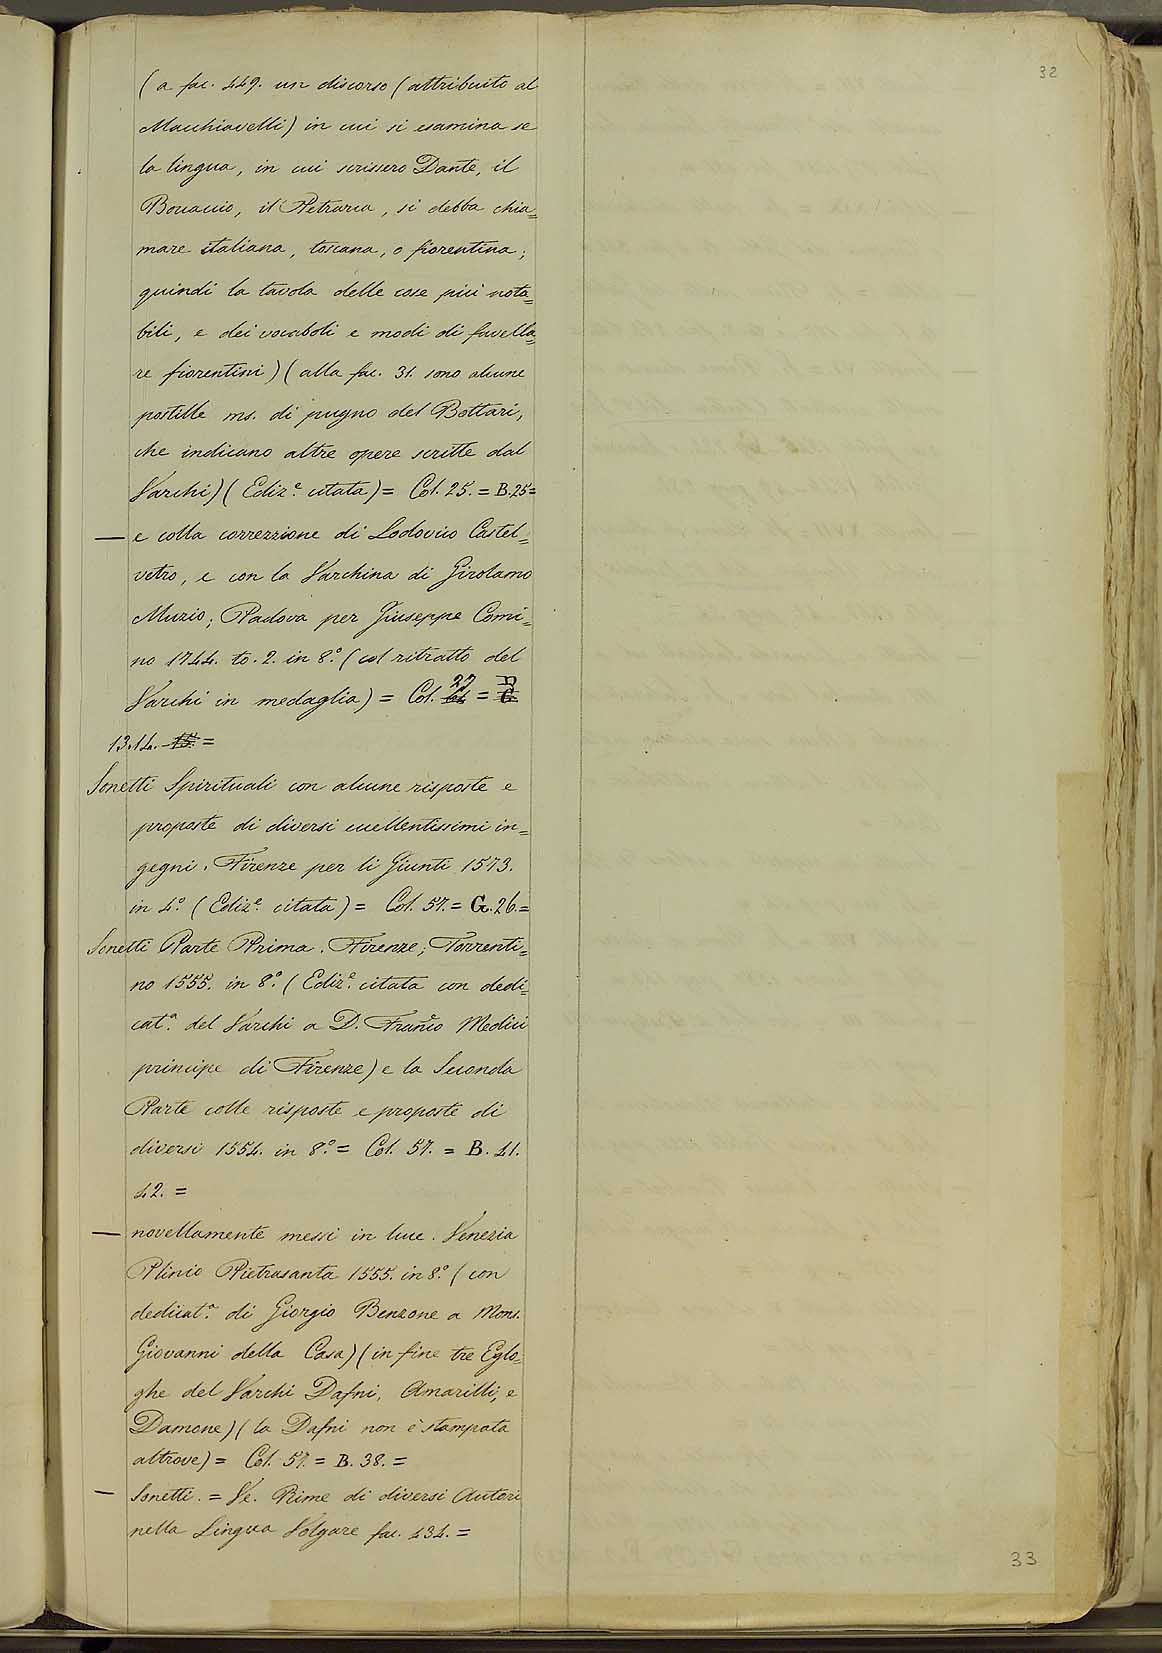 32
(a fac. 449. un discorso (attribuito al
Macchiavelli) in cui si esamina se
la lingua, in cui scrissero Dante, il
Boccaccio, il Petrarca, si debba chia=
mare italiana, toscana, o fiorentina;
quindi la tavola delle cose più nota=
bili, e dei vocaboli e modi di favella=
re fiorentini) (alla fac. 31. sono alcune
postille ms. di pugno del Bottari,
che indicano altre opere scritte dal
Varchi) (Ediz.e citata) = Col. 25. = B. 25 =
— e colla correzzione di Lodovico Castel=
vetro, e con la Varchina di Girolamo
Muzio; Padova per Giuseppe Comi=
no 1744. to. 2. in 8.° (col ritratto del
Varchi in medaglia) = Col. 27 = B
13.14. 15. =
Sonetti Spirituali con alcune risposte e
proposte di diversi eccellentissimi in=
gegni. Firenze per li Giunti 1573.
in 4.° (Ediz.e citata) = Col. 57. = G. 26. =
Sonetti Parte Prima. Firenze; Torrenti=
no 1555. in 8.° (Ediz.e citata con dedi=
cat.a del Varchi a D. Franco Medici
principe di Firenze) e la Seconda
Parte colle risposte e proposte di
diversi 1554. in 8.° = Col. 57. = B. 41.
42. =
— novellamente messi in luce. Venezia
Plinio Pietrasanta 1555. in 8.° (con
dedicat.a di Giorgio Benzone a Mons.
Giovanni della Casa) (in fine tre Eglo=
ghe del Varchi Dafni, Amarilli, e
Damone) (la Dafni non è stampata
altrove) = Col. 57. = B. 38. =
— Sonetti. = Ve. Rime di diversi Autori
nella Lingua Volgare fac. 434. =
33